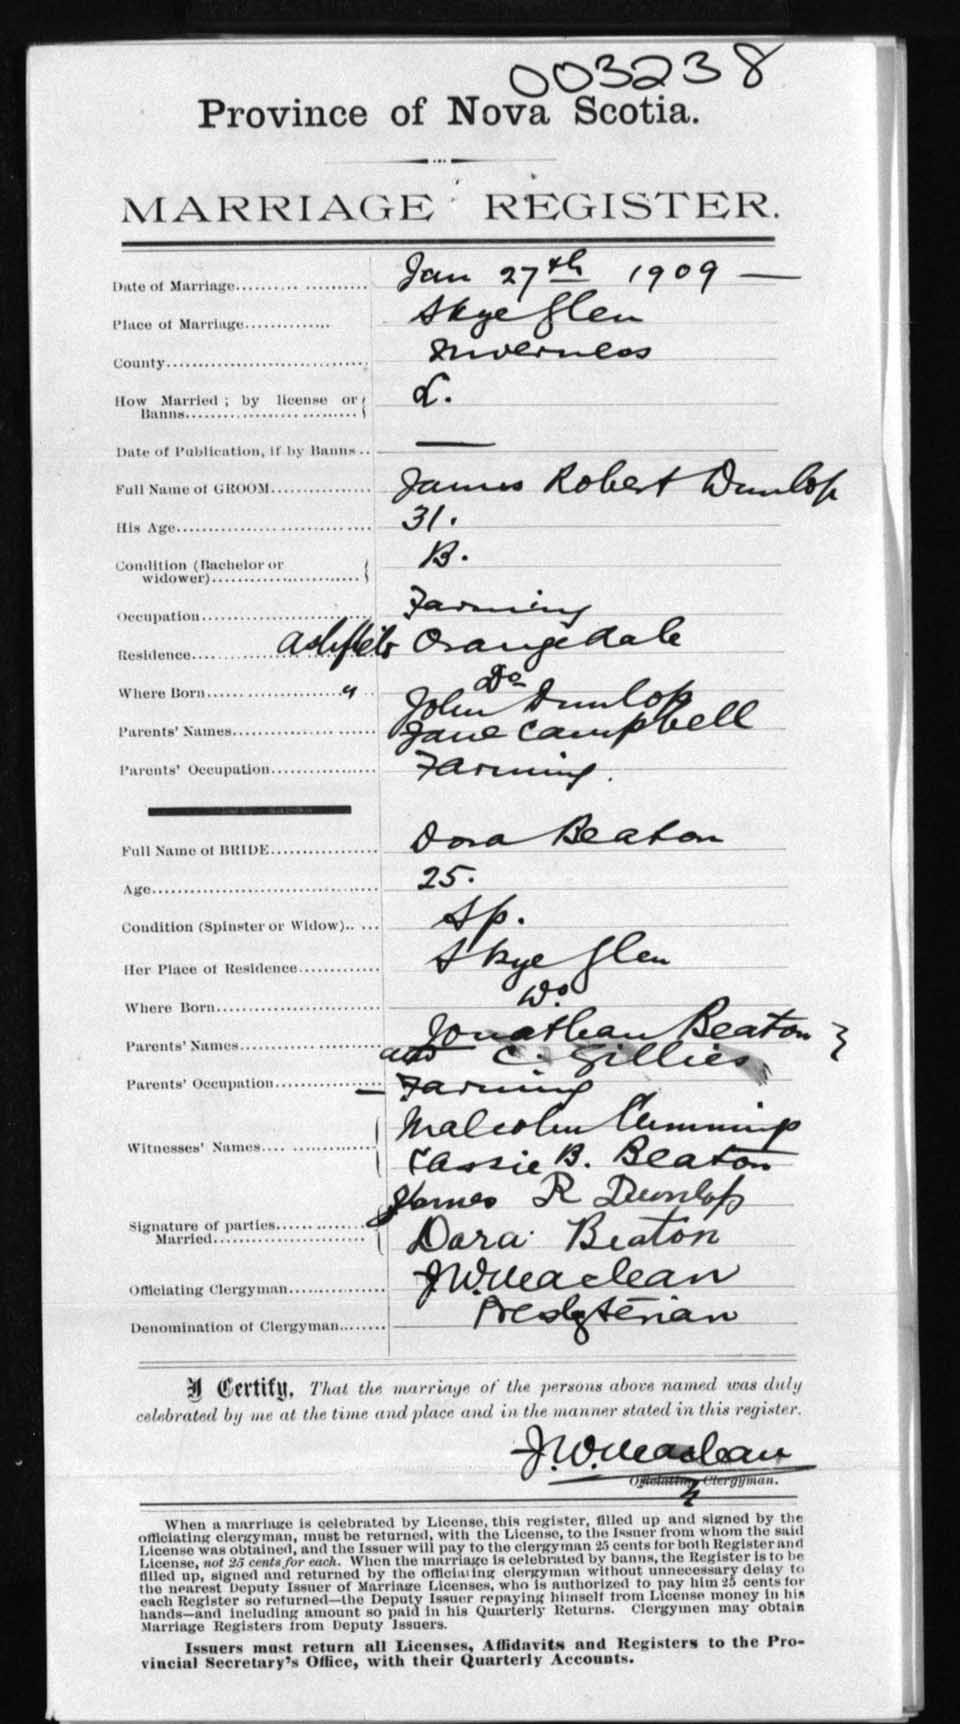 003238
Province of Nova Scotia.
MARRIAGE REGISTER.
Date of Marriage.......... Jan 27th 1909 —
Place of Marriage............. Skye Glen
County............................... Inverness
How Married ; by license or
Banns............................ L.
Date of Publication, if by Banns .. —
Full Name of GROOM............... James Robert Dunlop
His Age............................. 31.
Condition (Bachelor or
widower)........................ B.
Occupation.......................... Farming
Residence........ Ashfield Orangedale
Where Born................... " .. Do
Parents' Names...................... John Dunlop
Jane Campbell
Parents' Occupation................ Farming.
Full Name of BRIDE................ Dora Beaton
Age.................................. 25.
Condition (Spinster or Widow).. ... Sp.
Her Place of Residence............ Skye Glen
Where Born........................ Do.
Parents' Names..................... Jonathan Beaton }
and C. Gillies
Parents' Occupation............... — Farming
Witnesses' Names.... Malcolm Cummings
Cassie B. Beaton
Signature of parties............... James R Dunlop
Married....................... Dora Beaton
Officiating Clergyman.............. J. W. Maclean
Denomination of Clergyman........ Presbyterian
I Certify, That the marriage of the persons above named was duly
celebrated by me at the time and place and in the manner stated in this register.
J. W. Maclean
Officiating Clergyman.
When a marriage is celebrated by License, this register, filled up and signed by the
officiating clergyman, must be returned, with the License, to the Issuer from whom the said
License was obtained, and the Issuer will pay to the clergyman 25 cents for both Register and
License, not 25 cents for each. When the marriage is celebrated by banns, the Register is to be
filled up, signed and returned by the officiating clergyman without unnecessary delay to
the nearest Deputy Issuer of Marriage Licenses, who is authorized to pay him 25 cents for
each Register so returned—the Deputy Issuer repaying himself from License money in his
hands—and including amount so paid in his Quarterly Returns. Clergymen may obtain
Marriage Registers from Deputy Issuers.
Issuers must return all Licenses, Affidavits and Registers to the Pro-
vincial Secretary's Office, with their Quarterly Accounts.